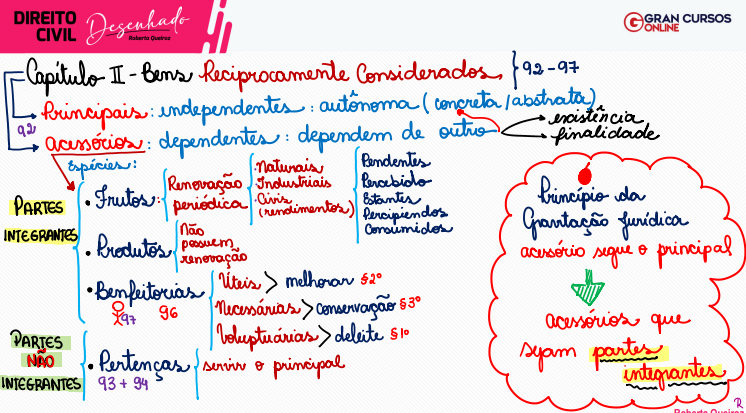 DIREITO
CIVIL
Desenhado
Roberta Queiroz
GRAN CURSOS
ONLINE
Capítulo II - Bens Reciprocamente Considerados } 92-97
92
Principais: independentes: autônoma (concreta/abstrata)
acessórios: dependentes: dependem de outro
existência
finalidade
Espécies:
PARTES
INTEGRANTES
• Frutos:
Renovação
periódica
· Naturais
· Industriais
· Civis
(rendimentos)
Pendentes
Percebido
Estantes
Percipiendos
Consumidos
• Produtos
Não
possuem
renovação
• Benfeitorias
97 96
Úteis > melhorar §2º
Necessárias > conservação §3º
Voluptuárias > deleite §1º
PARTES
NÃO
INTEGRANTES
• Pertenças
93 + 94
servir o principal
Princípio da
Gravitação Jurídica
acessório segue o principal
acessórios que
sejam partes
integrantes
R
Roberta Queiroz